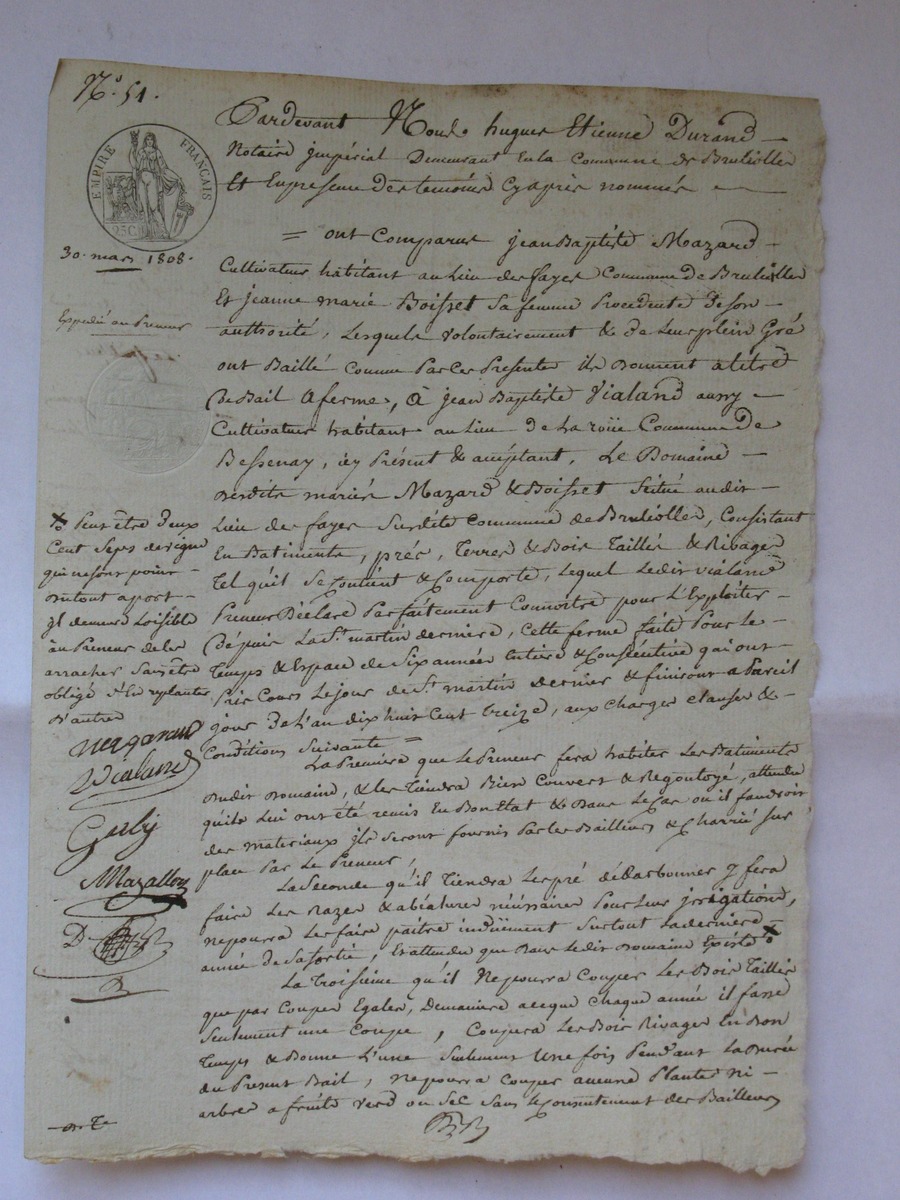 N.° 51.
EMPIRE FRANÇAIS
25 C.
30. mars 1808.
Expedié au Preneur
Pardevant Nous hugues Etienne Durand
Notaire jmpérial Demeurant En la Commune de Brulliolles
Et En presence des temoins Cy après nommés
= ont Comparus jean Baptiste Mazard
Cultivateur habitant au Lieu de fayes Commune de Brulliolles
Et jeanne marie Boisset Sa femme Procedente de son
authorité, Lesquels volontairement & de Leur plein Gré
ont Baillé Comme Par Ces Presentes ils Donnent a titre
De Bail a ferme, à jean Baptiste Vialand aussy
Cultivateur habitant au Lieu de La roüe Commune De
Bessenay, icy Présent & acceptant, Le Domaine
desdits mariés Mazard & Boisset Scitué audit
Lieu de fayes Surdite Commune de Brulliolles, Consistant
En Batiments, prés, Terres & Bois Tailles & Rivages
Tel qu'il Se Contient & Comporte, Lequel Ledit vialand
Preneur Déclare Parfaitement Connoitre pour L'Exploiter
Depuis La St. martin derniere, Cette ferme faite Pour le
Temps & Espace de Six années Entiere & Consécutive qui ont
Pris Cours Le jour de St. martin dernier & finiront a Pareil
jour De L'an dix huit Cent treize, aux Charges clauses &
Conditions Suivante =
La Premiere que Le Preneur fera habiter Les Batiments
dudit Domaine, & les Tiendra Bien Couvert & Regoutoyé, attendu
qu'ils Lui ont été remis En Bon Etat & Dans Le Cas où il faudroit
des materiaux ils Seront fournis Par les Bailleurs & Charrié Sur
place Par Le Preneur;
La Seconde qu'il Tiendra Les pré y fera
faire Les Razes & nécessaires Pour Leur jrrigations,
ne pourra Les faire paitre indüement Surtout La derniere
année de Sa Sortie, Et attendu que Dans Ledit Domaine Existe X
La Troisieme qu'il Ne pourra Couper Les Bois Tailles
que par Coupes Egales, De maniere a ce que Chaque année il fasse
Seulement une Coupe, Coupera Les Bois Rivages En Bon
Temps & Bonne Lune Seulement Une fois Pendant La Durée
du Present Bail, ne pourra Couper aucune Plante ni
arbres a fruits Verd ou Sec Sans le Consentement des Bailleurs
X Peut être Deux
Cent Seps de vigne
qui ne sont point
du tout a port
jl demeure Loisible
au Preneur de les
arracher Sans être
obligé d'En replanter
D'autres
Vialand
Mazallon
D